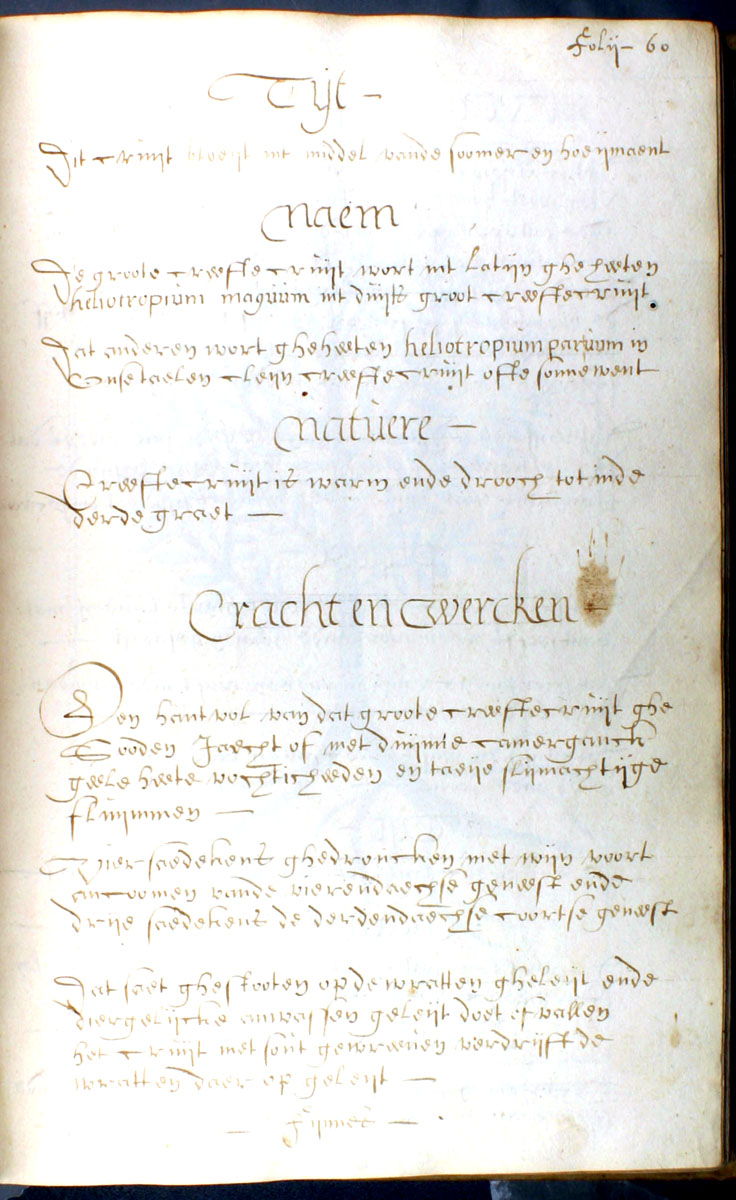 Folij - 60
Tijt -
Dit cruijt bloeijt int middel vande soomer en hoeijmaent
Naem
De groote creeftecruijt wort int Latijn ghehœten
heliotropium magnum int duits groot creeftecruijt.
Dat anderen wort ghehœten heliotropium parvum in
Onse taelen cleijn creeftecruijt ofte sonnewent
Natuere -
Creeftecruijt is warm ende drooch tot inde
derde graet -
Cracht en Twercken -
Een hantvol van dat groote creeftecruijt ghe
Sooden Jaecht of met duijnne camerganck
gœle hœte vochtichœden en taeije slijmachtijge
fluijmmen -
Vier saedekens ghedroncken met wijn voort
ancoomen vande vierendaechse genœst ende
drije saedekens de derdendaechse coortse genœst
Dat saet ghestooten op de wratten gheleijt ende
diergelijcke anwassen geleijt doet of vallen
het cruijt met sout gewrœven verdrijft de
wratten daer op geleijt -
- Fijnnes -